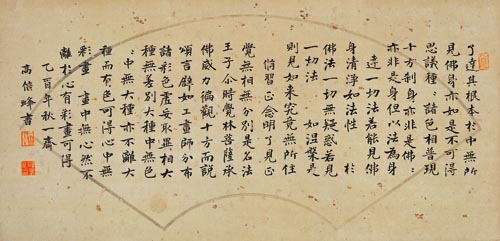 了達其根本於中無所
見佛身亦如是不可得
思議種〻諸色相普現
十方剎身亦非是佛〻
亦非是身但以法為身
達一切法若能見佛
身清淨如法性於
佛法一切無疑惑若見
一切法如涅槃是
則見如來究竟無所住
脩習正念明了見正
覺無相無分別是名法
王子尒時覺林菩薩承
佛威力徧觀十方而說
頌言譬如工畫師分布
諸彩色虛妄取異相大
種無差別大種中無色
〻中無大種亦不離大
種而有色可得心中無
彩畫〻中無心然不
離於心有彩畫可得
乙酉年秋一齋
高峰書